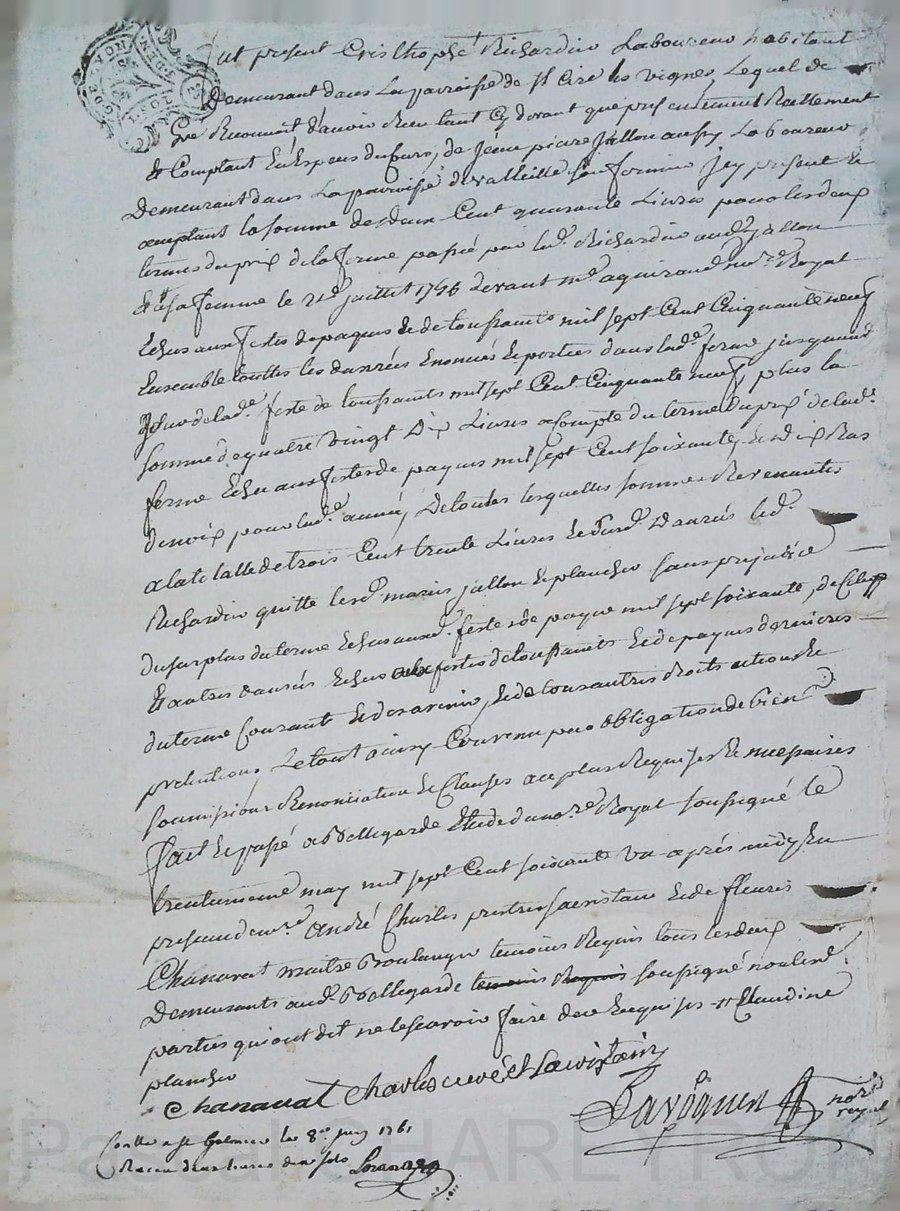 fut present Cristhophe Richardin Laboureur habitant
Demeurant dans La parroisse de st Cire les vignes Lequel de
gré Reconnoit d'avoir Reçu tant Cy devant que presentement Reellement
et Comptant En Especes du Cours, de jean piere jallon aussy Laboureur
Demeurant dans La parroisse de valleille son fermier jcy present et
acceptant la somme de deux Cent quarante Livres pour les deux
termes du prix de la ferme passé par led. Richardin aud. jallon
et a sa femme le 21e juillet 1756 devant me aguiraud nore Royal
Echus aux festes de paques et de toussaints mil sept Cent Cinquante neuf
Ensemble touttes les danrées Enoncés et portées dans lad. ferme jusquaud
jour de lad. feste de toussaints mil sept Cent Cinquante neuf, plus la
somme de quatre vingt Dix Livres a Compte du terme du prix de lad.
ferme Echu aux festes de paques mil sept Cent soixante, et dix Ras
de noix pour lad. année, De toutes lesquelles sommes Revenantes
a la totalle de trois Cent trente Livres et susd. Danrés led.
Richardin quitte lesd. mariés jallon et planchu sans prejudice
du surplus du terme Echus auxd. festes de paque mil sept soixante, de Celuy
Et autres danrés Echus aux festes de toussaints et de paques dernieres
du terme Courant et des avenir, et de tous autres droits actions et
pretentions Le tout ainsy Convenu par obligation de bien
soumissions Renonciation et Clauses au plus Requises et necessaires
fait et passé a Bellegarde Etude du nore Royal soussigné le
trente unieme may mil sept Cent soixante un après midy En
presence de mre André Charles prestre sacristain et de fleuris
Chanavat maitre Boulanger temoins Requis tous les deux
Demeurants aud. Bellegarde temoins Requis soussigné non lesd.
parties qui ont dit ne le scavoir faire de ce Enquises et Claudine
planchu
Chanavat Charles curé et Sacristain
nore royal
Conllé a st Galmier le 8e juin 1761
Receu douze sols
Pascal CHAREYRON